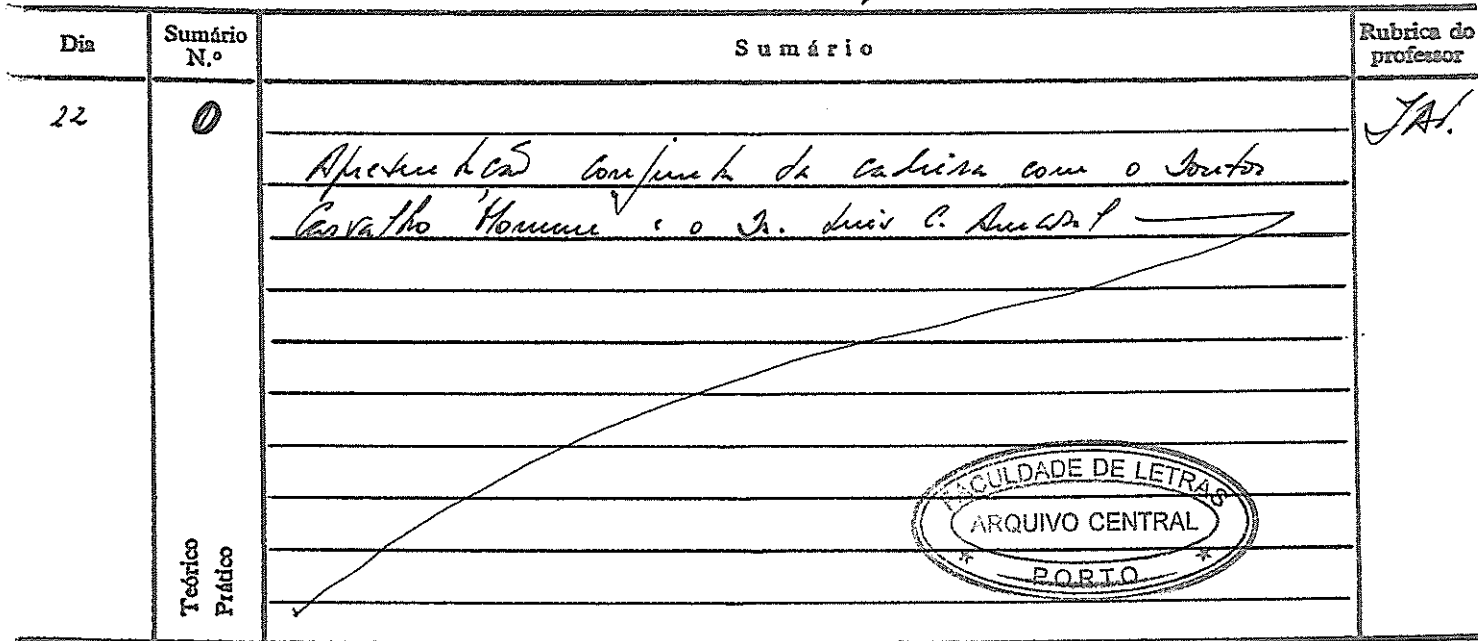 Dia
Sumário N.º
Sumário
Rubrica do professor
22
Apresentação conjunta da cadeira com o Doutor
Carvalho Homem e o Dr. Luís C. Amaral
FACULDADE DE LETRAS
ARQUIVO CENTRAL
PORTO
Teórico
Prático